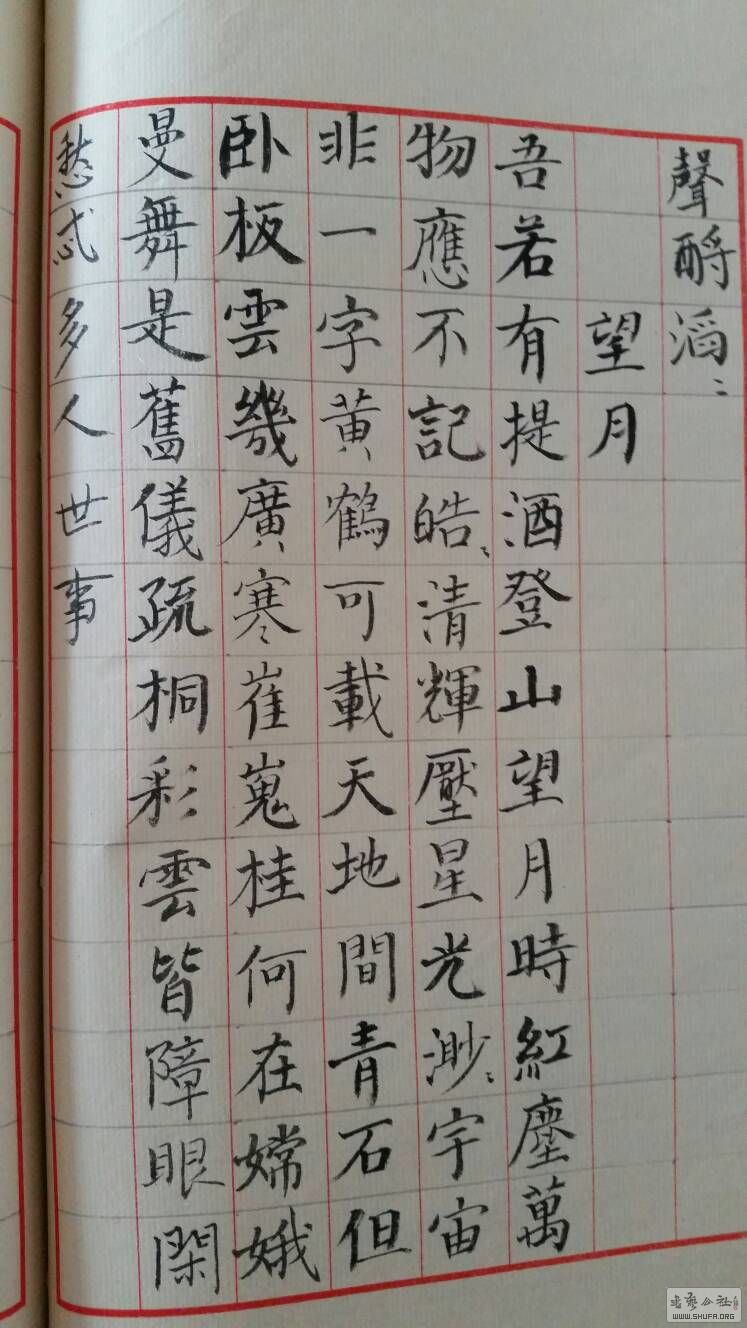 聲酹滔〻
望月
吾若有提酒登山望月時紅塵萬
物應不記皓〻清輝壓星光渺〻宇宙
非一字黃鶴可載天地間青石但
卧板雲幾廣寒崔嵬桂何在嫦娥
曼舞是舊儀疏桐彩雲皆障眼閑
愁忒多人世事
WWW.SHUFA.ORG